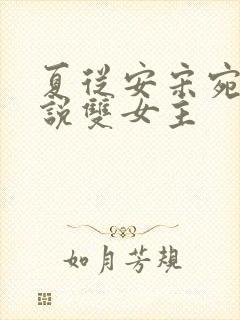 夏從安宋宛
說雙女主
如月芳規